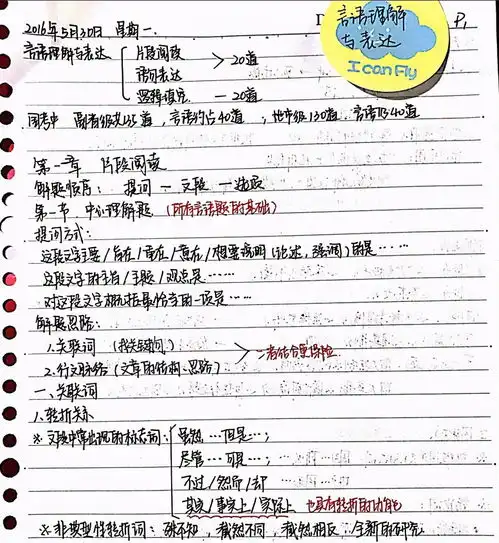 言语理解
与表达
I can Fly
P1
2016年5月30日 星期一.
言语理解与表达 片段阅读
语句表达 > 20道
逻辑填空 — 20道
国考中 副省级共135道，言语约占40道，地市级130道.言语约40道
第一章 片段阅读
解题顺序：提问 — 文段 — 选项
第一节 中心理解题 (所有言语题的基础)
提问方式：
这段文字主要/旨在/意在/重在/想要说明(论述，强调)的是……
这段文字的主旨/主题/观点是……
对这段文字概括最恰当的一项是……
解题思路：
1.关联词 (找关键词)
2.行文脉络 (文章的结构、思路) > 二者结合更保险
一、关联词
1.转折关系
※文段中常出现的标志词： 虽然…但是…；
尽管…可是…；
不过/然而/却
其实/事实上/实际上 也具有转折的功能
※非典型性转折词：殊不知，截然不同，截然相反.全新的研究